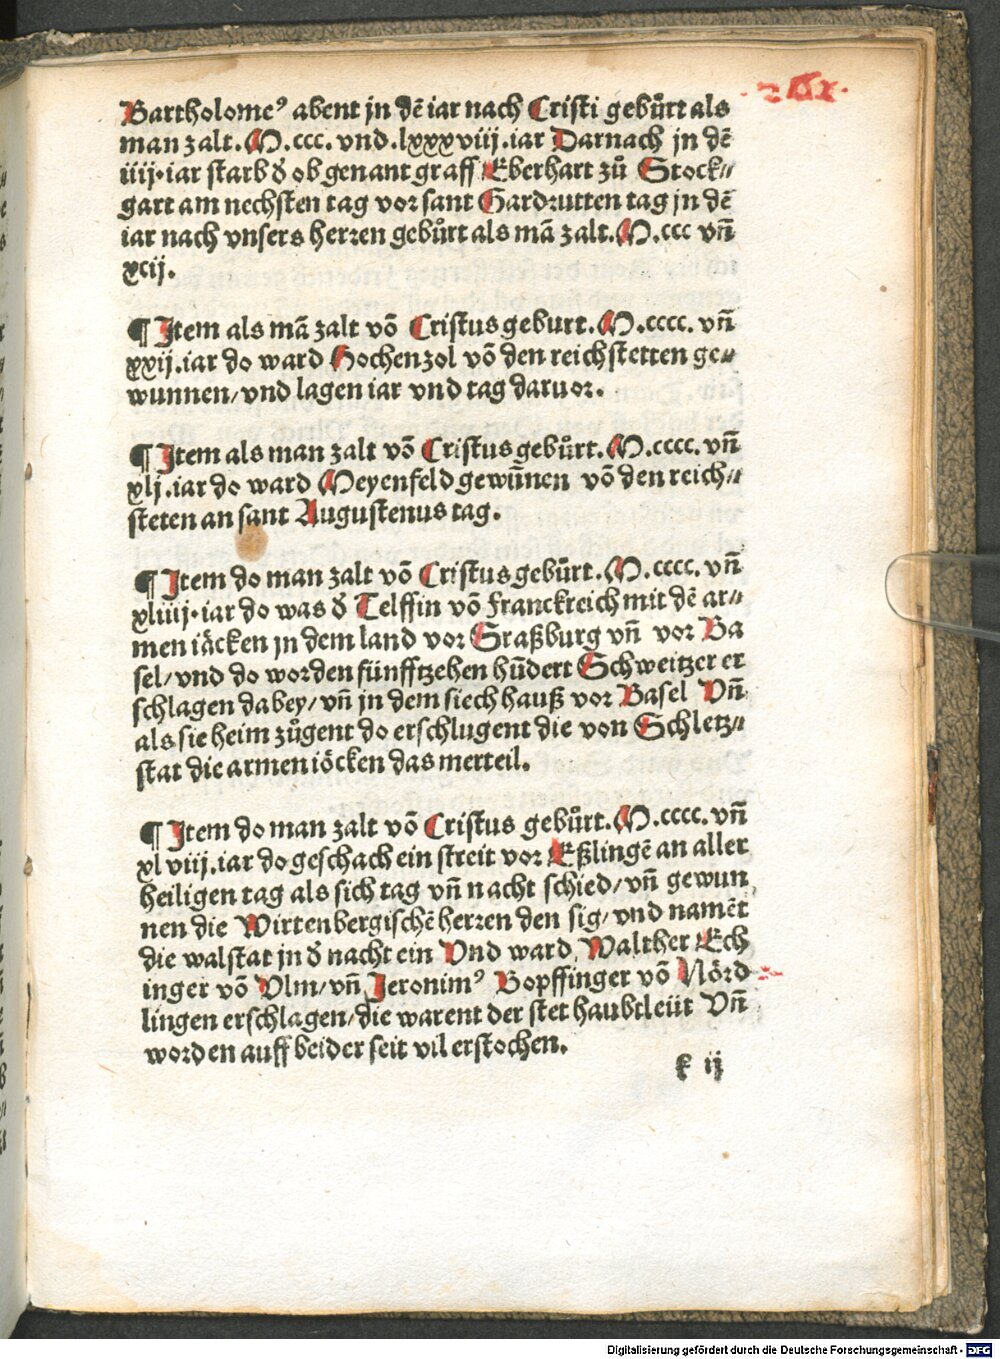 Bartholomeꝰ abent jn dē iar nach Cristi gebůrt als
man zalt. M.ccc. vnd. lxxxviij. iar Darnach jn dē
iiij. iar starb ð ob genant graff Eberhart zů Stock⸗
gart am nechsten tag vor sant Gardrutten tag jn dē
iar nach vnsers herren gebůrt als mā zalt. M.ccc vn̄
xcij.
¶ Item als mā zalt vō Cristus geburt. M.cccc. vn̄
xxij. iar do ward Hochenzol vō den reichstetten ge⸗
wunnen/ vnd lagen iar vnd tag daruor.
¶ Item als man zalt vō Cristus gebůrt. M.cccc. vn̄
xlj. iar do ward Meyenfeld gewūnen vō den reich⸗
steten an sant Augustenus tag.
¶ Item do man zalt vō Cristus gebůrt. M.cccc. vn̄
xliiij. iar do was ð Telffin vō Franckreich mit dē ar⸗
men iäcken jn dem land vor Straßburg vn̄ vor Ba
sel/ vnd do worden fünfftzehen hūdert Schweitzer er
schlagen dabey/ vn̄ jn dem siech hauß vor Basel Vn̄
als sie heim zůgent do erschlugent die von Schletz⸗
stat die armen iöcken das merteil.
¶ Item do man zalt vō Cristus gebůrt. M.cccc. vn̄
xl viij. iar do geschach ein streit vor Eßlingē an aller
heiligen tag als sich tag vn̄ nacht schied/ vn̄ gewun
nen die Wirtenbergischē herren den sig/ vnd namēt
die walstat jn ð nacht ein Vnd ward Walther Ech
inger vō Vlm/ vn̄ Jeronimꝰ Bopffinger vō Nörd
lingen erschlagen/ die warent der stet haubtleüt Vn̄
worden auff beider seit vil erstochen.
k ij
Digitalisierung gefördert durch die Deutsche Forschungsgemeinschaft - DFG